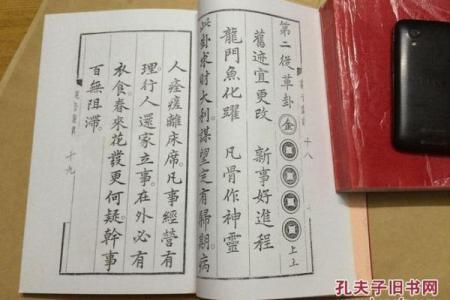 第二從革卦 金 上上
十八
舊迹宜更改 新事好進程
龍門魚化躍 凡骨作神靈
此卦求財大利。謀望定有歸期。病
人痊瘥離床席。凡事經營有
理。行人還家立事。在外必有
衣食。春來花發更何疑。幹事
百無阻滯。
十九
孔夫子旧书网